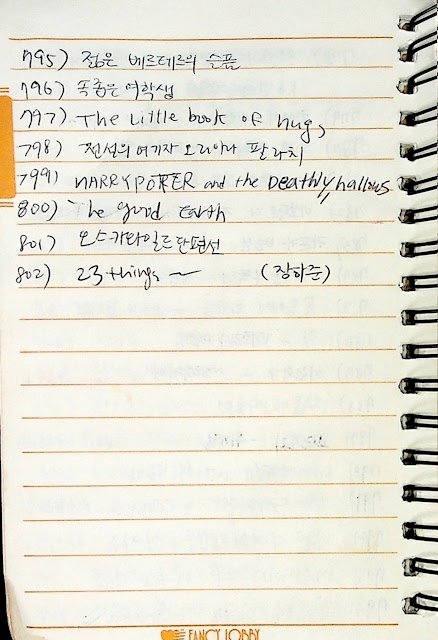 795) 젊은 베르테르의 슬픔
796) 속좁은 여학생
797) The Little book of hugs
798) 전설의 여기자 오리아나 팔라치
799) HARRY POTTER and the Deathly hallows
800) The good Earth
801) 오스카와일드단편선
802) 23 things ~ (장하준)
FANCY LOBBY